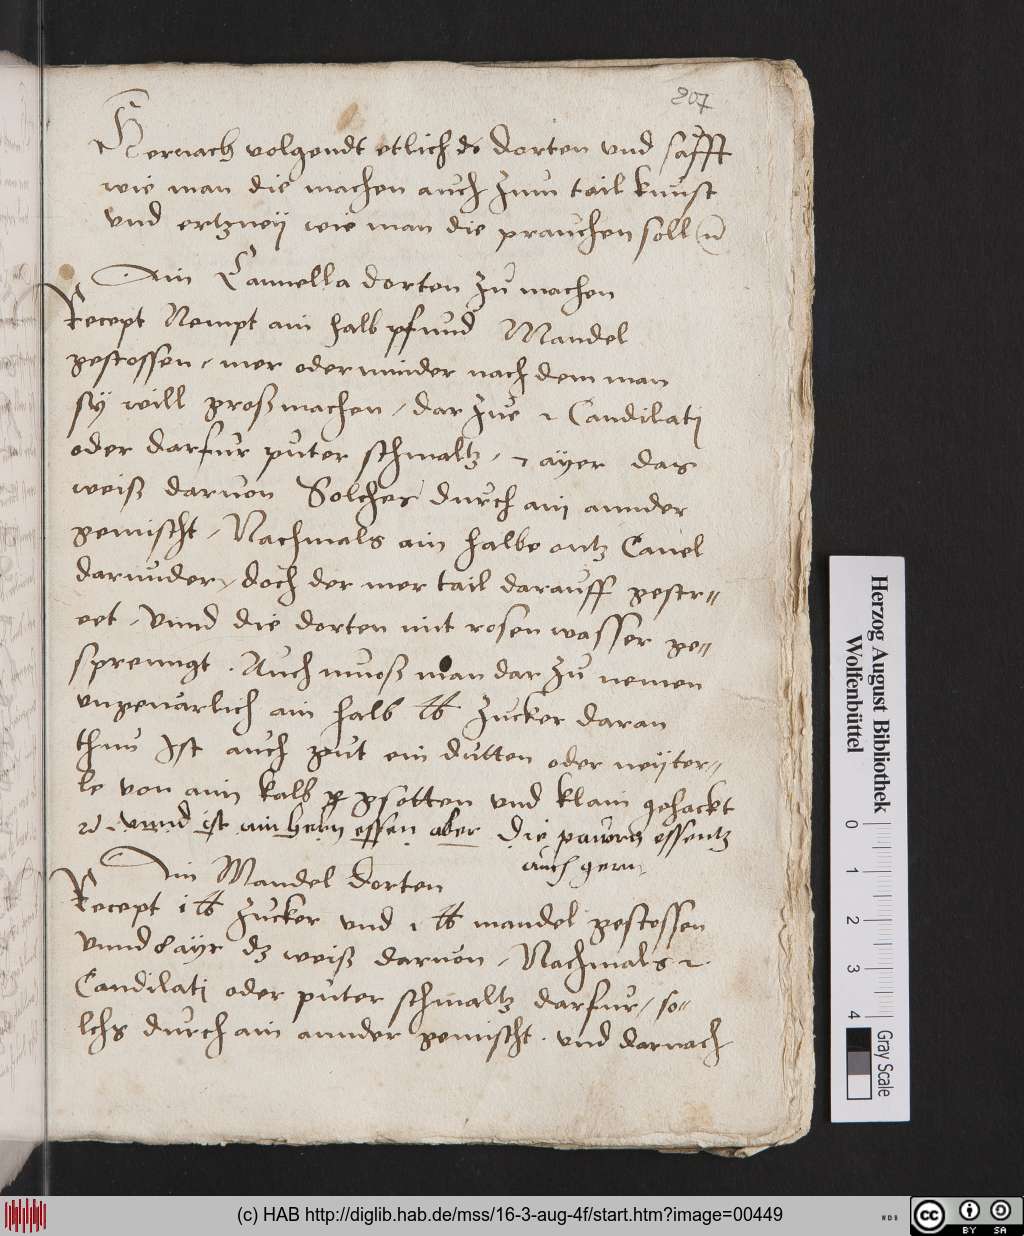 207
Hernach volgendt etliche dorten vnd safft
wie man die machen auch zum tail kunst
vnd ertzney wie man die prauchen soll
Ain Cannella dorten zu machen
Recept Nempt ain halb pfund Mandel
gestossen, mer oder minder nach dem man
sy will groß machen, dar zue 1 Candilati
oder darfur puter schmaltz, 7 ayer das
weiß daruon Solches durch ain annder
gemischt, Nachmals ain halbe ontz Canel
darunder, doch der mer tail darauff gestr=
eet, vnnd die dorten mit rosen wasser ge=
sprenngt. Auch muoß man dar zu nemen
vngeuarlich ain halb lb zucker daran
thun Ist auch gut ein dutten oder neyter=
le von ain kalb gsotten vnd klain gehackt
vnnd ist ain hern essen aber die pawrn essentz
auch gern
Ain Mandel dorten
Recept 1 lb zucker vnd 1 lb mandel gestossen
vnnd 8 ayr dz weiß daruon, Nachmals 2
Candilati oder puter schmaltz darfur, so=
lchs durch ain annder gemischt. vnd darnach
Herzog August Bibliothek
Wolfenbüttel
0 1 2 3 4
Gray Scale
(c) HAB http://diglib.hab.de/mss/16-3-aug-4f/start.htm?image=00449
WDB
cc
BY SA